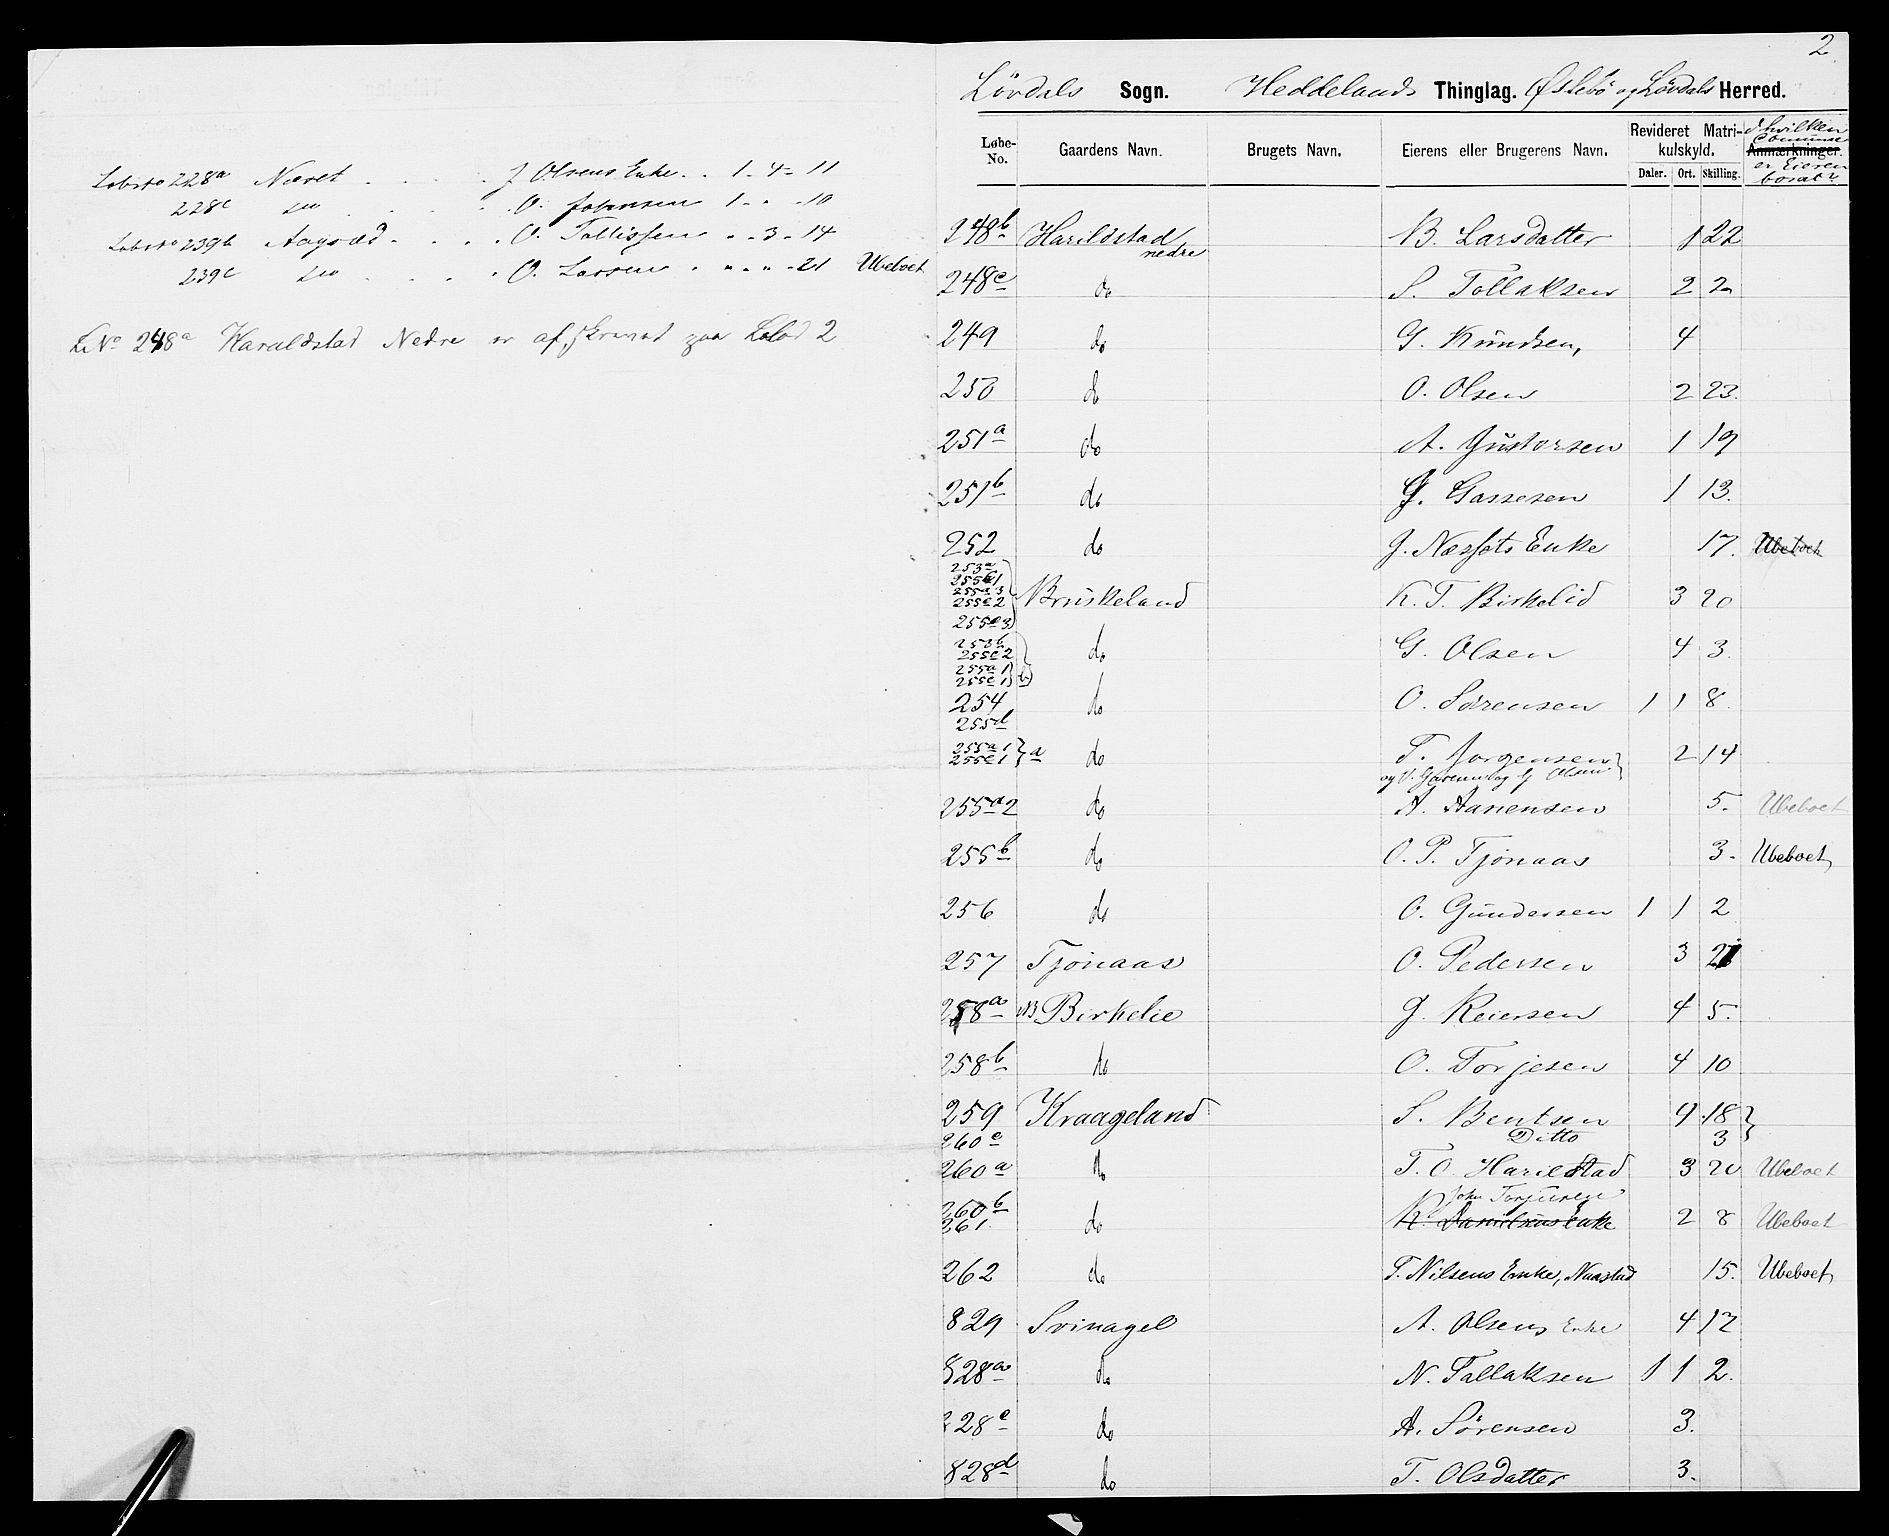 Løbeno 228a Næret . . . . J Olsens Enke . . 1 - 4 - 11
228c do . . . . O. Johnsen 1 - " - 10
Løbeno 239b Aagsæd . . . . O. Tallissen " - 3 - 14
239c do . . . . O. Larsen . " - " - 21 Ubeboet
LNo 248a Haraldstad Nedre er afskrevet paa
2
Løvdals Sogn. Heddelands Thinglag. Øslebø og Løvdals Herred.
Løbe-No. Gaardens Navn. Brugets Navn. Eierens eller Brugerens Navn. Revideret Matrikulskyld. Daler. Ort. Skilling. Anmærkninger. I hvilken Commune er Eieren bosat?
248b Harildstad nedre B. Larsdatter 1 22
248c do S. Tollaksen 2 2
249 do G. Knudsen, 4
250 do O. Olsen 2 23.
251a do A. Gustavsen 1 19
251b do G. Gassesen 1 13.
252 do J. Næssets Enke 17. Ubeboet
253a
255c1
255a3
255c2 Bruskeland K. T. Birkelid 3 20
255c3
253b
255c2 do G. Olsen 4 3.
255a1
255c1 } b
254 do O. Sørensen 1 1 8.
255d
255a1
255c1 } a do T. Jørgensen 2 14
og G Olsen
255a2 do A. Aanensen 5. Ubeboet
255b do O. P. Tjønaas 3. Ubeboet
256 do O. Gundersen 1 1 2
257 Tjønaas O. Pedersen 3 21
258a NB Birkelie J. Reiersen 4 5.
258b do O. Torjesen 4 10
259 Kraageland S. Bentsen 4 18
260c Ditto 3
260a do T. O. Harildstad 3 20 Ubeboet
260b John Torjusen
261 do K. Danielsens Enke 2 8 Ubeboet
262 do T. Nilsens Enke, Naastad 15. Ubeboet
829 Svinagel A. Olsens Enke 4 12
828a do N. Tallaksen 1 1 2.
228c do A. Sørensen 3.
828d do T. Olsdatter 3.